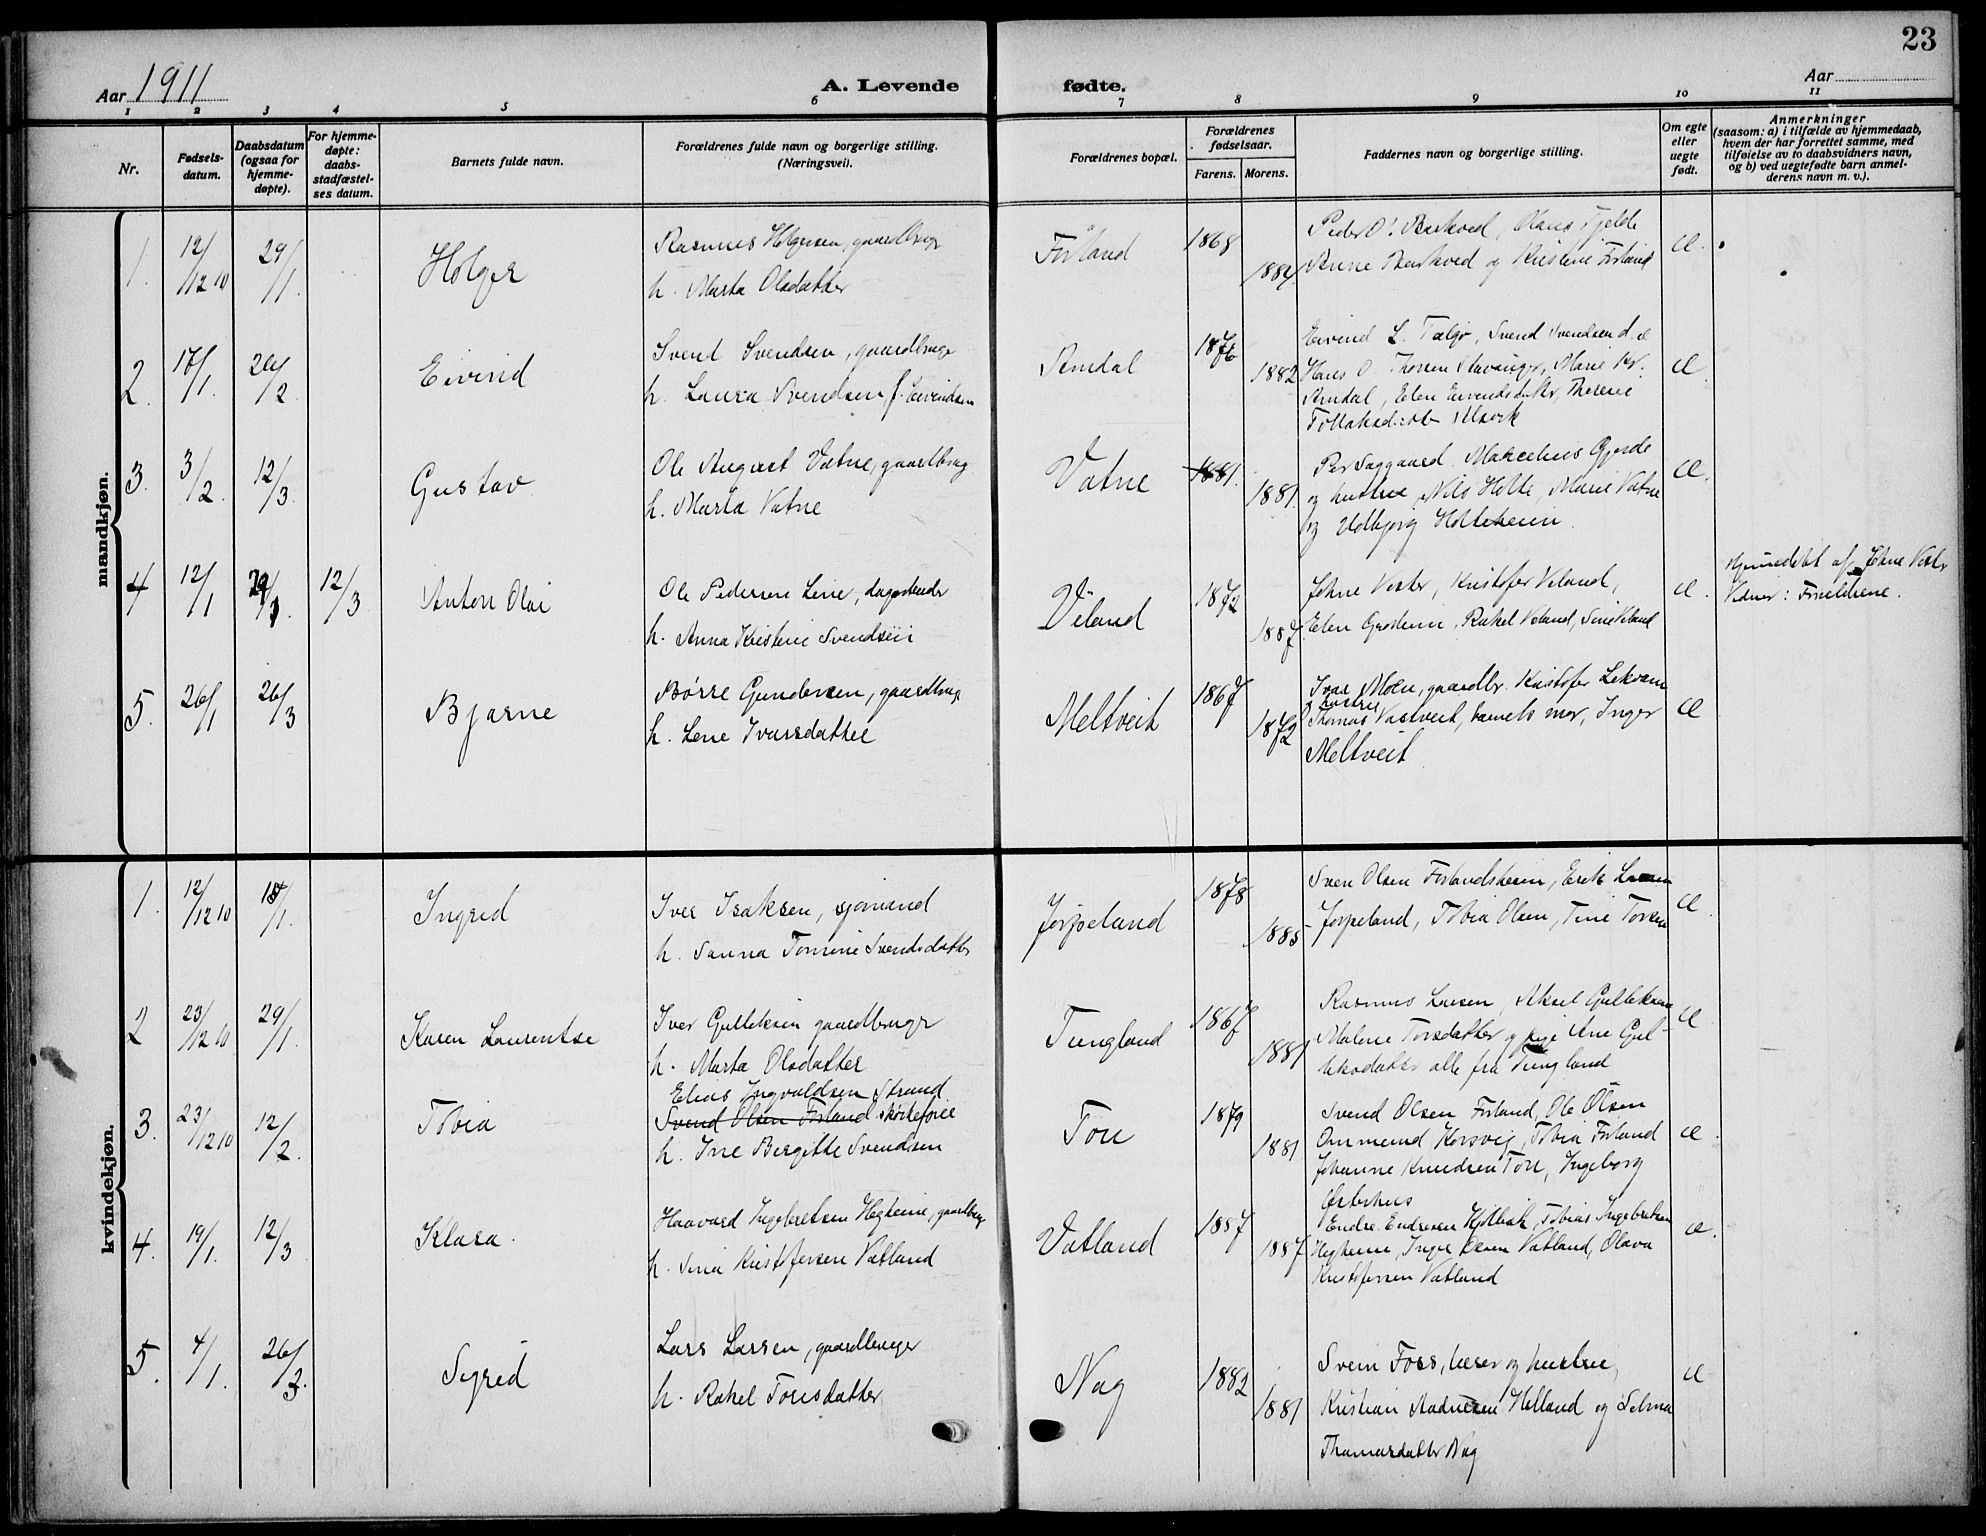 23
Aar 1911
A. Levende fødte.
Aar
1 2 3 4 5 6 7 8 9 10 11
Nr.
Fødsels-
datum.
Daabsdatum
(ogsaa for
hjemme-
døpte).
For hjemme-
døpte:
daabs-
stadfæstel-
ses datum.
Barnets fulde navn.
Forældrenes fulde navn og borgerlige stilling.
(Næringsvei).
Forældrenes bopæl.
Forældrenes
fødselsaar.
Farens. Morens.
Faddernes navn og borgerlige stilling.
Om egte
eller
uegte
født.
Anmerkninger
(saasom: a) i tilfælde av hjemmedaab,
hvem der har forrettet samme, med
tilføielse av to daabsvidners navn,
og b) ved uegtefødte barn anmel-
derens navn m. v.).
mandkjøn.
1. 12/12 10 29/1. Holger
Rasmus Holgersen, gaardbruger
h. Marta Olsdatter
Forland 1868
Peder O. Barkved, Olaus Tjelde
Anne Barkved og Kristine Forland
e.
2. 17/1. 26/2. Eivind
Svend Svendsen, gaardbruger
h. Laura Svendsen f. Eivindsen
Amdal 1876 1882
Eivind L. Talgø, Svend Svendsen d.e
Hans O. Thorsen Stavanger, Marie Kr.
Amdal, Elen Eivendsdatter, Therese
e.
3. 3/2. 12/3. Gustav
Ole August Vatne, gaardbrug.
h. Marta Vatne
Vatne 1881. 1881.
Per Saggaard, Marcelius Gjerde
og hustru, Nils Holte, Marie Vatne
og Valbjørg Holteheien.
e.
4 12/1 12/3 Anton Olai
Ole Pedersen Leire, dagarbeider
h. Anna Kristine Svendsen
Veland 1872 1887.
Johne Vester, Kristofer Veland,
Elen Grødeim, Rakel Veland, Sina Veland
e.
Hjemmedøbt af Johne Vester
Vidner: Forældrene.
5. 26/1 26/3 Bjarne
Børre Gundersen, gaardbrug.
h. Lene Ivarsdatter
Meltveit 1867 1872
Ivar Moen, gaardbr. Kristofer Lekvam
& hustru
Thomas Vastveit, barnets mor, Inger
Meltveit
e
kvindekjøn.
1. 12/12 10 15/1. Ingrid
Iver Isaksen, sjømand
h. Sanna Tomine Svendsdatter
Jørpeland 1878 1885
Sven Olsen Forlandsheien, Erik Larsen
Jørpeland, Tobia Olsen, Tine Torsen
e.
2 23/12 10 29/1. Karen Laurentse
Iver Gulleksen gaardbruger
h. Marta Olsdatter
Tungland 1867 1881
Rasmus Larsen, Aksel Gulleksen
Malene Torsdatter og pige Ane Gul-
leksdatter alle fra Tungland
e
3. 23/12 10 12/2. Tobia
Elias Ingvaldsen Strand
Svend Olsen Forland skøitefører
h. Ine Bergitte Svendsen
Tou 1879 1881
Svend Olsen Forland, Ole Olsen
Ommund Horsvig, Tobia Forland
Johanne Knudsen Tou, Ingeborg
Østerhus
e.
4. 19/1. 12/3 Klara.
Haavard Ingebretsen Hegheim, gaardbrug.
h. Sina Kristofersen Vatland
Vatland 1887 1887
Endre Endresen, Tobias Ingebretsen
Hegheim, Inger Olsen Vatland, Olava
Kristofersen Vatland
e.
5. 4/1. 26/3. Sigrid
Lars Larsen, gaardbruger
h. Rakel Torisdatter
Nag 1882 1881
Svein Foss, lærer og hustru,
Kristian Aadnesen Helland og Selma
Thomasdatter Nag
e